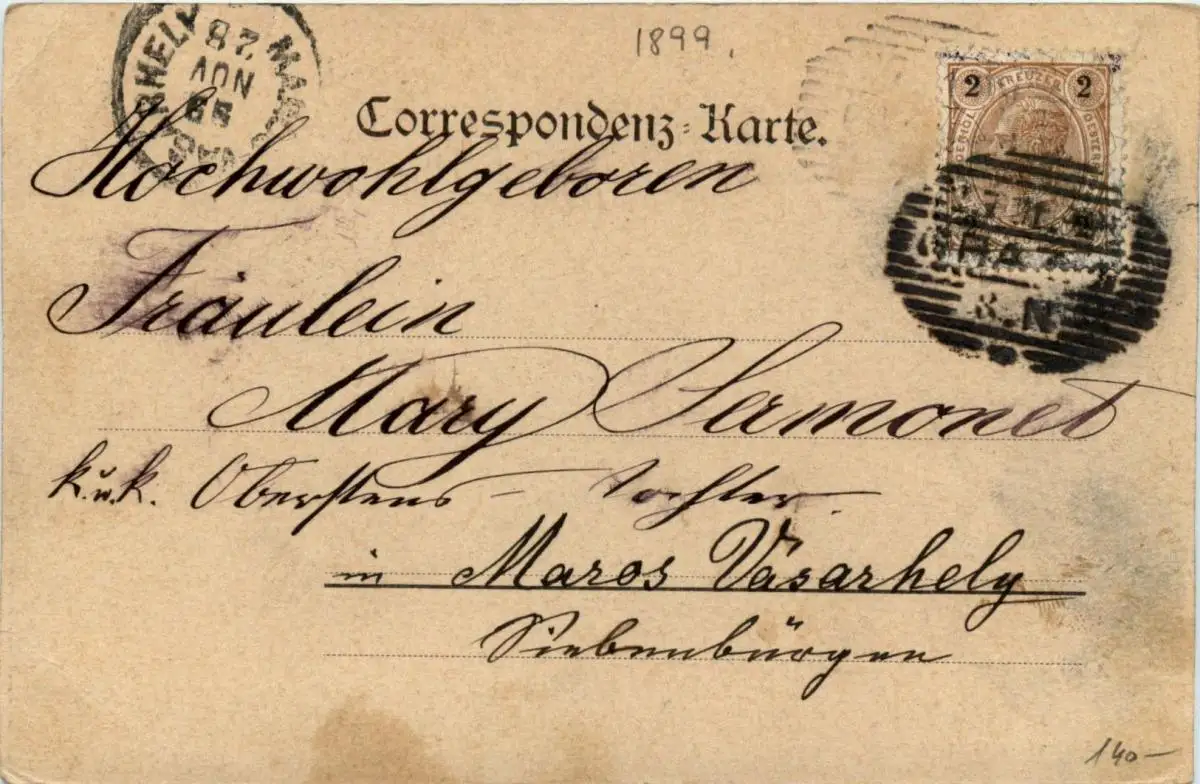 1899.
28
NOV
Correspondenz-Karte.
2 KREUZER 2
Hochwohlgeboren
Fräulein
Mary Sermonet
k. u. k. Oberstens-tochter.
in Maros Vásarhely
Siebenbürgen
140-